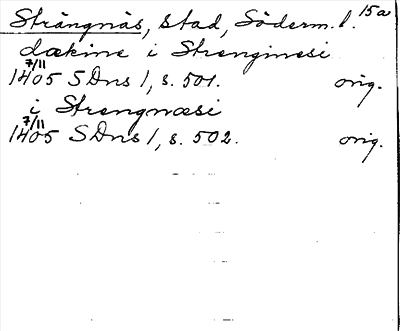 Strängnäs, stad, Söderm. l. 15a
dækine i Strenginesi
7/11
1405 SDns 1, s. 501. orig.
i Strengnæsi
7/11
1405 SDns 1, s. 502. orig.